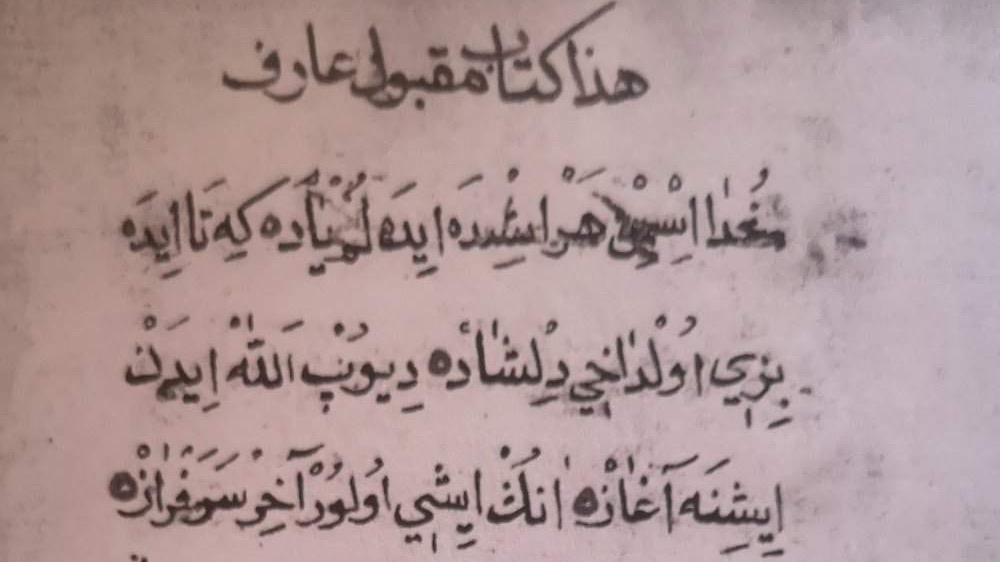 هذا كتاب مقبول عارف
خُدَا اِسْمِنْ هَرْ اِشْدَه اِيدَه لُمْ يَادَه كِه تَا اِيدَه
بِزِي اُولْدَاخِي دِلْشَادَه دِيوُبْ اَللّٰه اِيدَنْ
اِيشِنَه آغَازْه اَنكْ اِيشِي اُولُورْ آخِرْ سَرَفْرَازْه